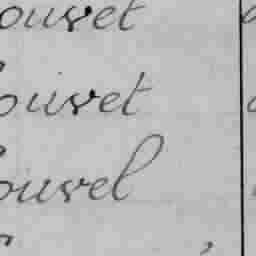 ouvet
ouvet
ouvel